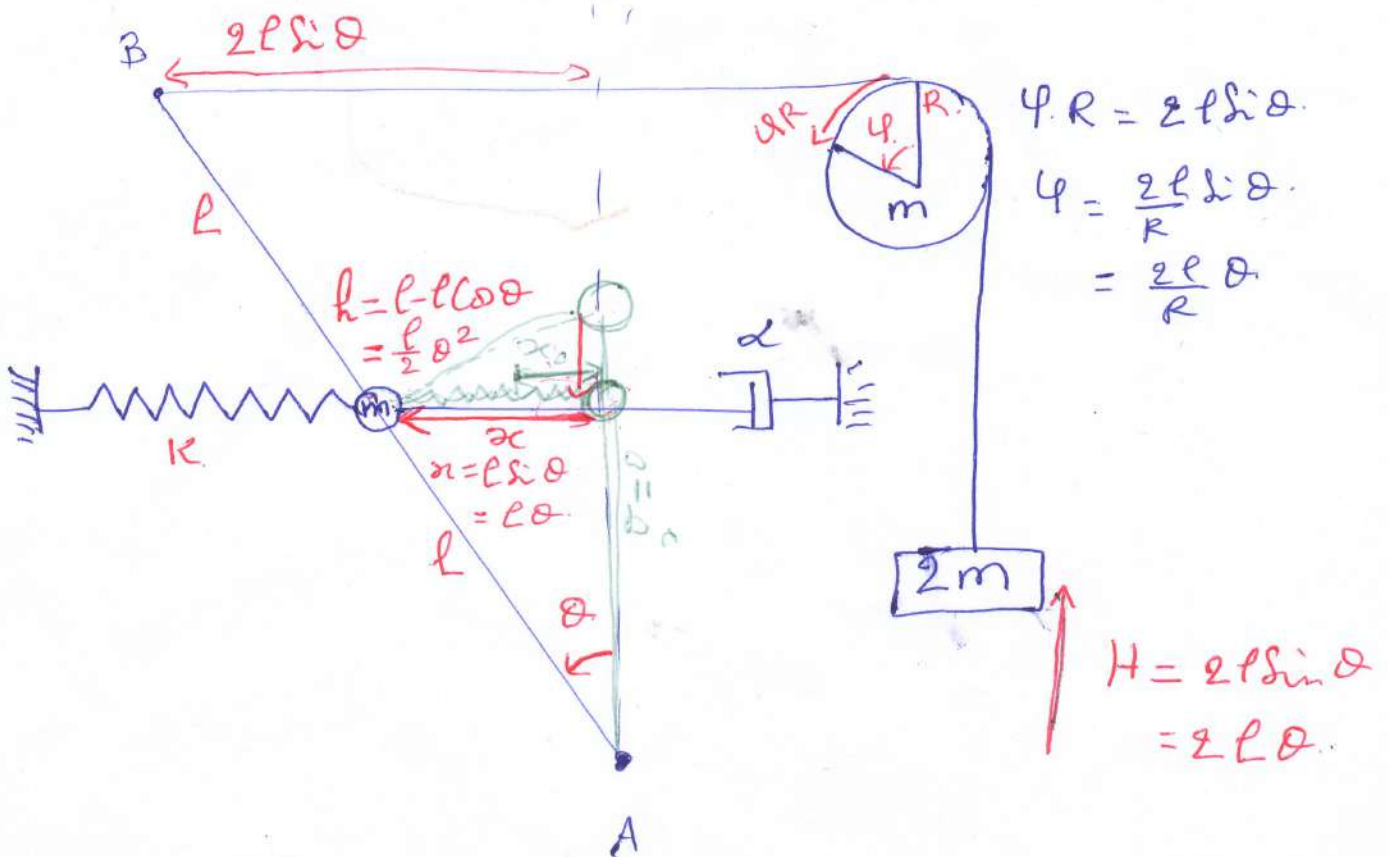 2ℓ Sin θ
B
R
φR
φ
m
φ.R = 2ℓ Sin θ.
φ = 2ℓ/R Sin θ.
= 2ℓ/R θ.
ℓ
h = ℓ-ℓCos θ
= ℓ/2 θ²
x₀
α
m
K
x
x = ℓ Sin θ
= ℓθ.
ℓ
θ
2m
H = 2ℓ Sin θ
= 2ℓθ.
A